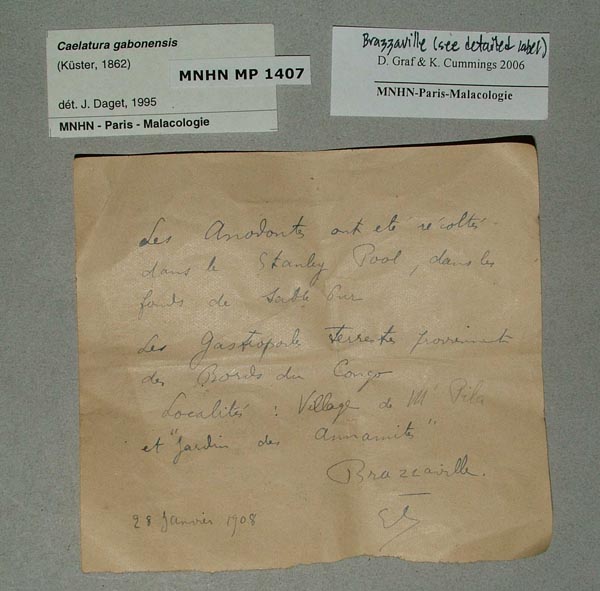 Caelatura gabonensis
(Küster, 1862)
MNHN MP 1407
dét. J. Daget, 1995
MNHN - Paris - Malacologie
Brazzaville (see detailed label)
D. Graf & K. Cummings 2006
MNHN-Paris-Malacologie
Les Anodontes ont été récoltés
dans le Stanley Pool, dans les
fonds de sable pur
Les Gastropodes terrestres proviennent
des Bords du Congo
Localités : Village de M' Pila
et "Jardin des Annamites"
Brazzaville.
28 Janvier 1908